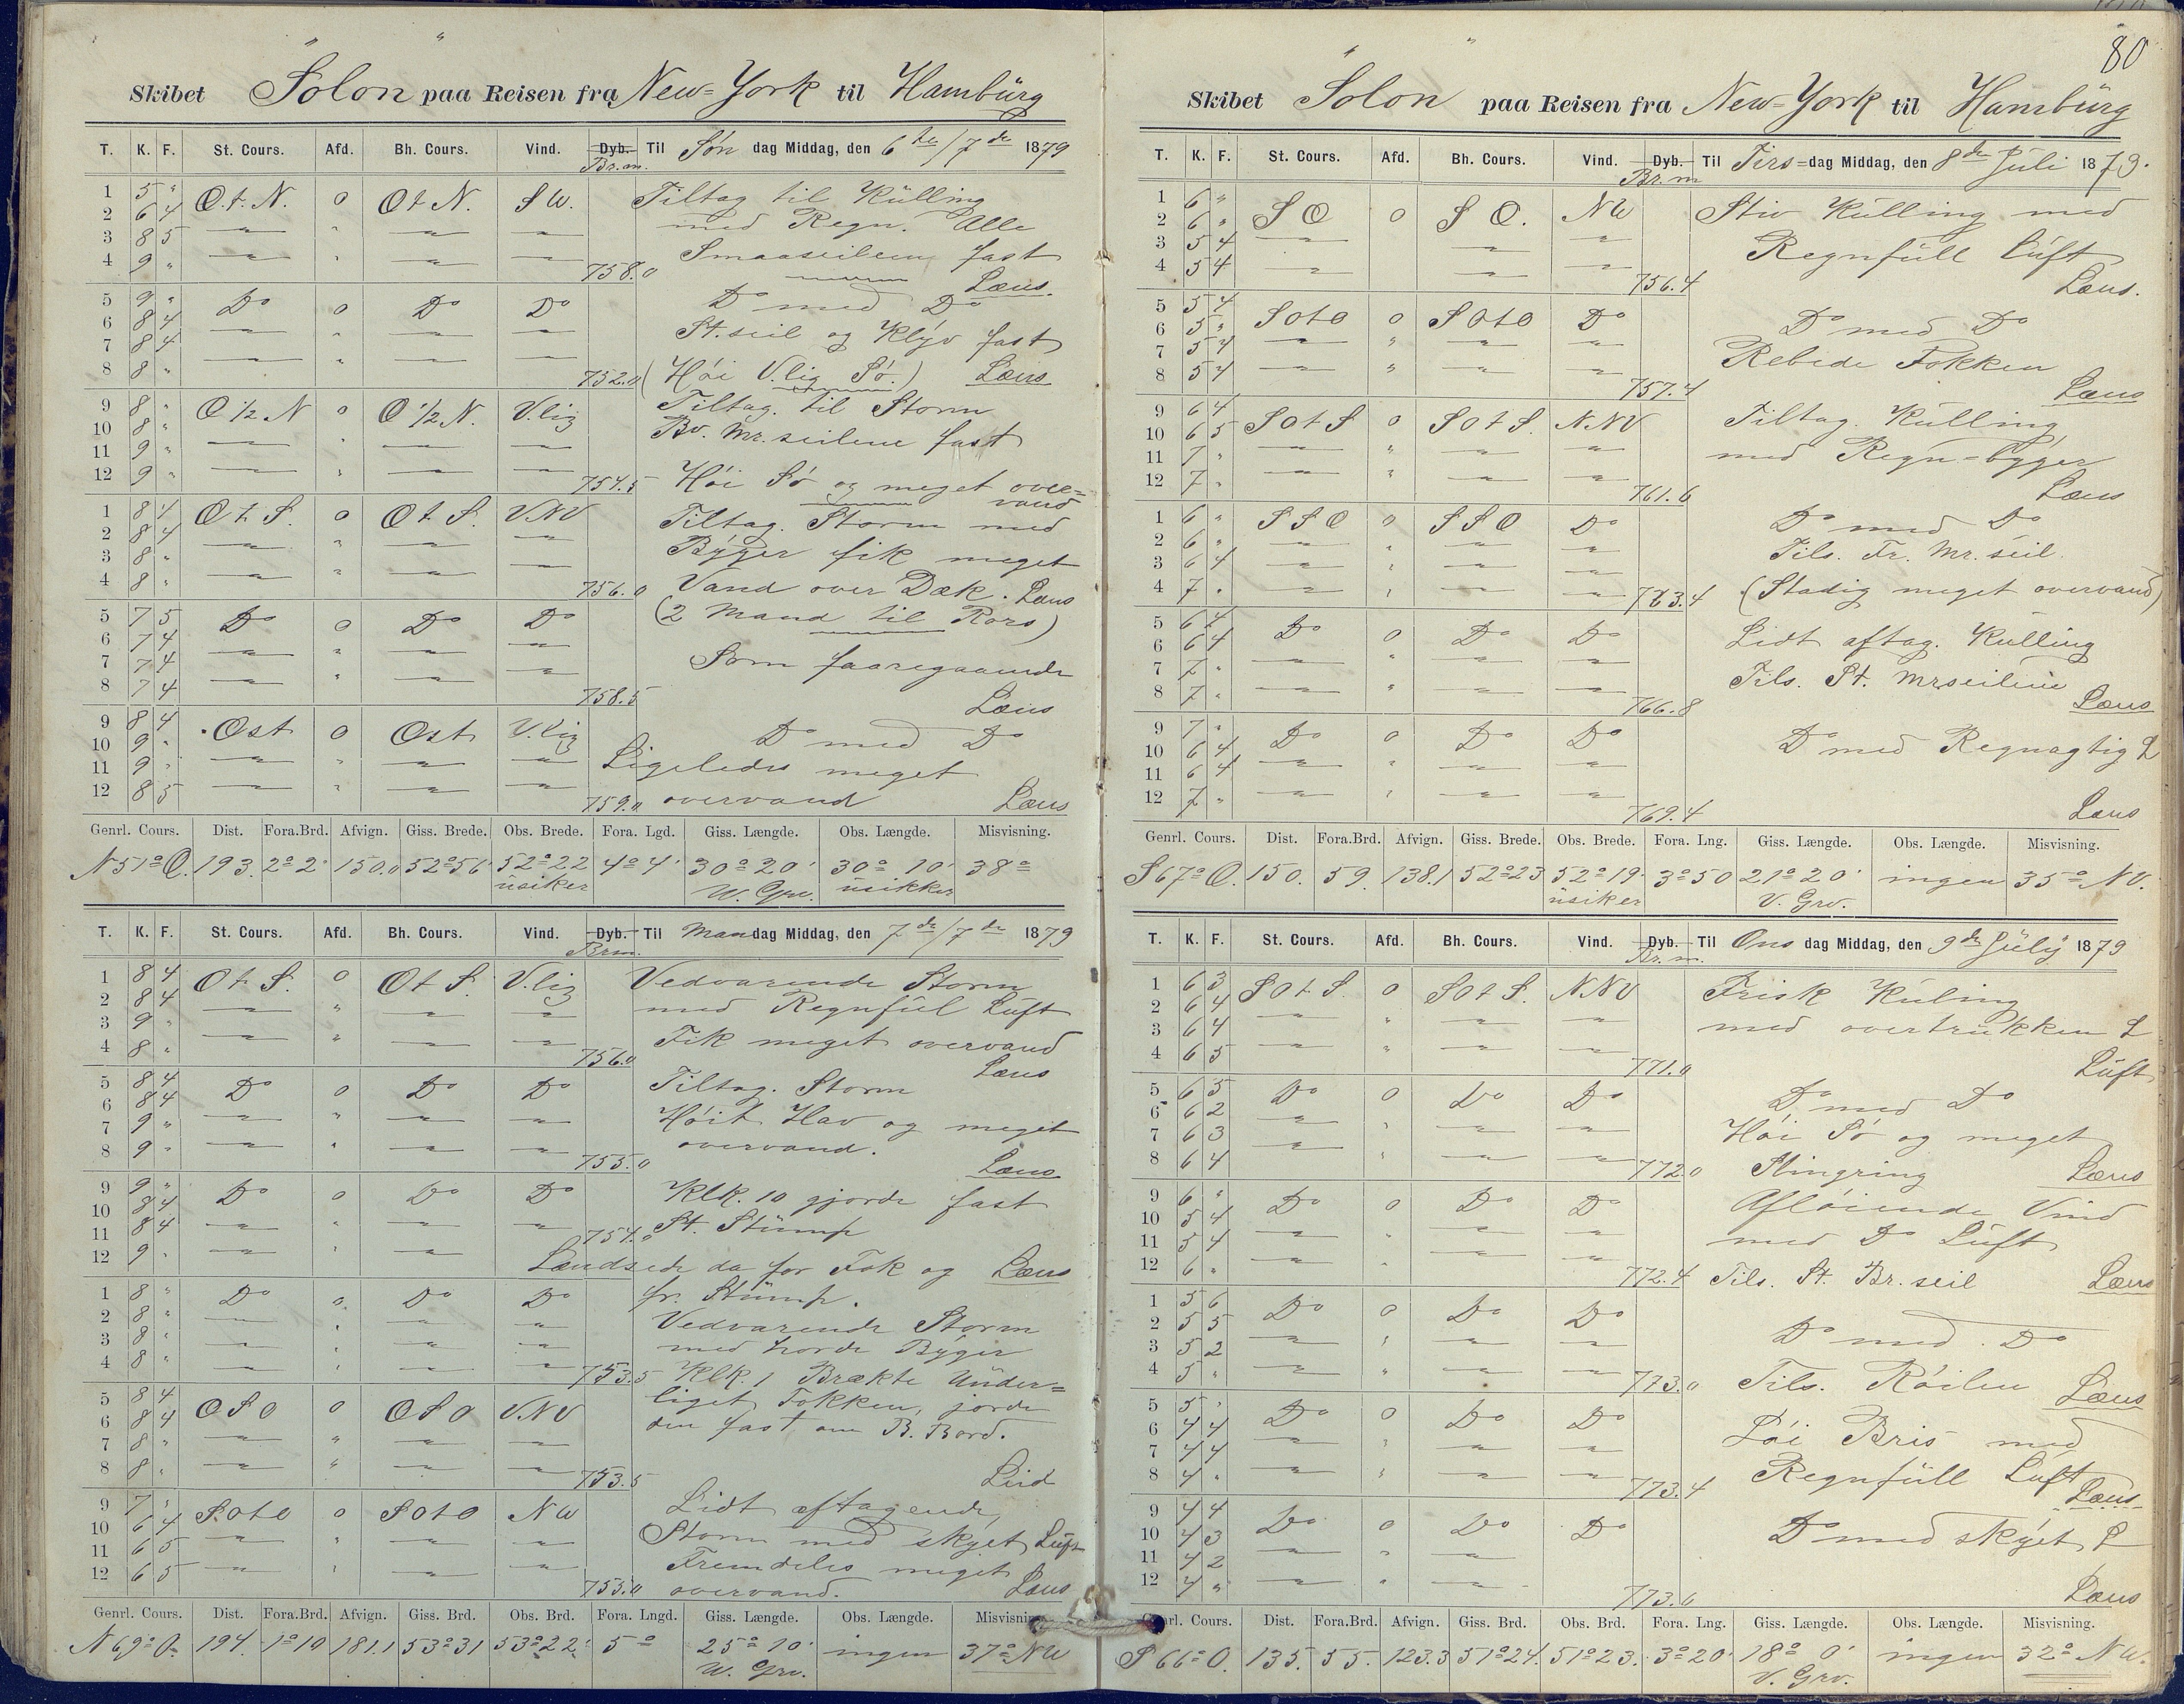 80
Skibet Solon paa Reisen fra New=York til Hambürg
T. K. F. St. Cours. Afd. Bh. Cours. Vind. Dyb. Til Søn dag Middag, den 6te/7de 1879
Br.m.
1 5 " O.t.N. 0 OtN. SW. Tiltag til Külling
2 6 4 med Regn. Alle
3 8 5 Smaaseilene fast
4 9 " 758.0 Læns.
5 9 " Do 0 Do Do Do med Do
6 8 4 St.seil og Klÿv fast
7 8 4
8 8 " 752.0 (Høi V.lig Sø.) Læns
9 8 " O ½ N 0 O ½ N. V.lig Tiltag. til Storm
10 8 " Bv. Mr. seilene fast
11 9 "
12 9 " 754.5 Høi Sø og meget over=
vand
1 8 4 Ot S. 0 Ot S. V.NV Tiltag. Storm med
2 8 4 Bÿger fik meget
3 8 "
4 8 " 756.0 Vand over Dæk. Læns
5 7 5 Do 0 Do Do (2 Mand til Rors)
6 7 4
7 7 4 Som foaregaaende
8 7 4 758.5 Læns
9 8 4 Ost 0 Ost V.lig Do med Do
10 9 " Ligeledes meget
11 9 "
12 8 5 759.0 overvand Læns
Genrl. Cours. Dist. Fora.Brd. Afvign. Giss. Brede. Obs. Brede. Fora. Lgd. Giss. Længde. Obs. Længde. Misvisning.
N 51° O. 193. 2° 2' 150.0 52° 56' 52° 22 4° 4' 30° 20' 30° 10' 38°
üsiker W. Grv. üsikker
T. K. F. St. Cours. Afd. Bh. Cours. Vind. Dyb. Til Man dag Middag, den 7de/7de 1879
Brm.
1 8 4 Ot S. 0 Ot S. V.lig Vedvarende Storm
2 8 4 med Regnfül Lüft
3 9 "
4 8 " 756.0 Fik meget overvand
Læns
5 8 4 Do 0 Do Do Tiltag. Storm
6 8 4
7 9 " Høit Hav og meget
8 9 " 755.0 overvand. Læns
9 9 " Do 0 Do Do Klk. 10 gjorde fast
10 8 4
11 8 4 754.0 St. Stümp
12 9 " Lændsede da for Fok og Læns
1 8 " Do 0 Do Do fr. Stümp.
2 8 " Vedvarende Storm
3 8 " med horde Bÿger
4 8 " 753.5 Klk. 1 Brækte Ünder=
5 8 4 liget Fokken, jorde
6 8 4 OSO 0 OSO V.NV den fast om B. Bord.
7 8 "
8 8 " 753.5
9 7 " SOtO 0 SOtO NW Lidt aftagende
10 6 4 Storm med skÿet Lüft
11 6 5 Fremdeles meget
12 6 5 755.0 overvand. Læns
Genrl. Cours. Dist. Fora.Brd. Afvign. Giss. Brd. Obs. Brd. Fora. Lngd. Giss. Længde. Obs. Længde. Misvisning.
N 69° O. 194. 1° 10 181.1 53° 31 53° 22' 5° 25° 10' ingen 37° NW
W. Grv.
Skibet Solon paa Reisen fra New=York til Hambürg
T. K. F. St. Cours. Afd. Bh. Cours. Vind. Dyb. Til Tirs=dag Middag, den 8de Jüli 1879.
Br.m
1 6 " SO 0 SO. NW Stiv Külling med
2 6 "
3 5 4 Regnfüll Lüft
4 5 4 756.4 Læns.
5 5 4 SOtO 0 SOtO Do Do med Do
6 5 "
7 5 4 Rebede Fokken
8 5 4 757.4 Læns
9 6 4 SOtS 0 SOtS. N.NV Tiltag. Külling
10 6 5
11 7 " med Regn=bÿger
12 7 " 761.6 Læns
1 6 " SSO 0 SSO Do Do med Do
2 6 " Tils. Fr. Mr. seil.
3 6 4
4 7 " 763.4 (Stadig meget overvand)
5 6 4 Do 0 Do Do Lidt aftag. Külling
6 6 4
7 7 " Tils. St. Mrseilene
8 7 " 766.8 Læns
9 7 " Do 0 Do Do Do med Regnagtig L
10 6 4
11 6 4
12 7 " 769.4 Læns
Genrl. Cours. Dist. Fora.Brd. Afvign. Giss. Brede. Obs. Brede. Fora. Lng. Giss. Længde. Obs. Længde. Misvisning.
S 67° O. 150. 59. 138.1 52° 23 52° 19' 3° 50 21° 20' ingen 35° NV.
üsiker V. Grv.
T. K. F. St. Cours. Afd. Bh. Cours. Vind. Dyb. Til Ons dag Middag, den 9de Jülÿ 1879
Br.m.
1 6 3 SOtS. 0 SOtS. NNV Frisk Küling
2 6 4
3 6 4 med overtrükken L
4 6 5 771.0 Lüft
5 6 5 Do 0 Do Do Do med Do
6 6 2
7 6 3 Høi Sø og meget
8 6 4 772.0 Slingring Læns
9 6 " Do 0 Do Do Afløiende Vind
10 5 4
11 5 4 med Do Lüft
12 6 " 772.4 Tils. St. Br. seil Læns
1 5 6 Do 0 Do Do
2 5 5 Do med Do
3 5 2
4 5 " 773.0 Tils. Røilen Læns
5 5 " Do 0 Do Do
6 4 4 Løi Bris med
7 4 4 Regnfüll Lüft
8 4 " 773.4 Læns
9 4 4 Do 0 Do Do Do med skÿet L
10 4 3
11 4 2
12 4 " 773.6 Læns
Cours. Dist. Fora.Brd. Afvign. Giss. Brd. Obs. Brd. Fora. Lng. Giss. Længde. Obs. Længde. Misvisning.
S 66° O. 135. 55. 123.3 51° 24. 51° 23. 3° 20' 18° 0' ingen 32° NW.
V. Grv.